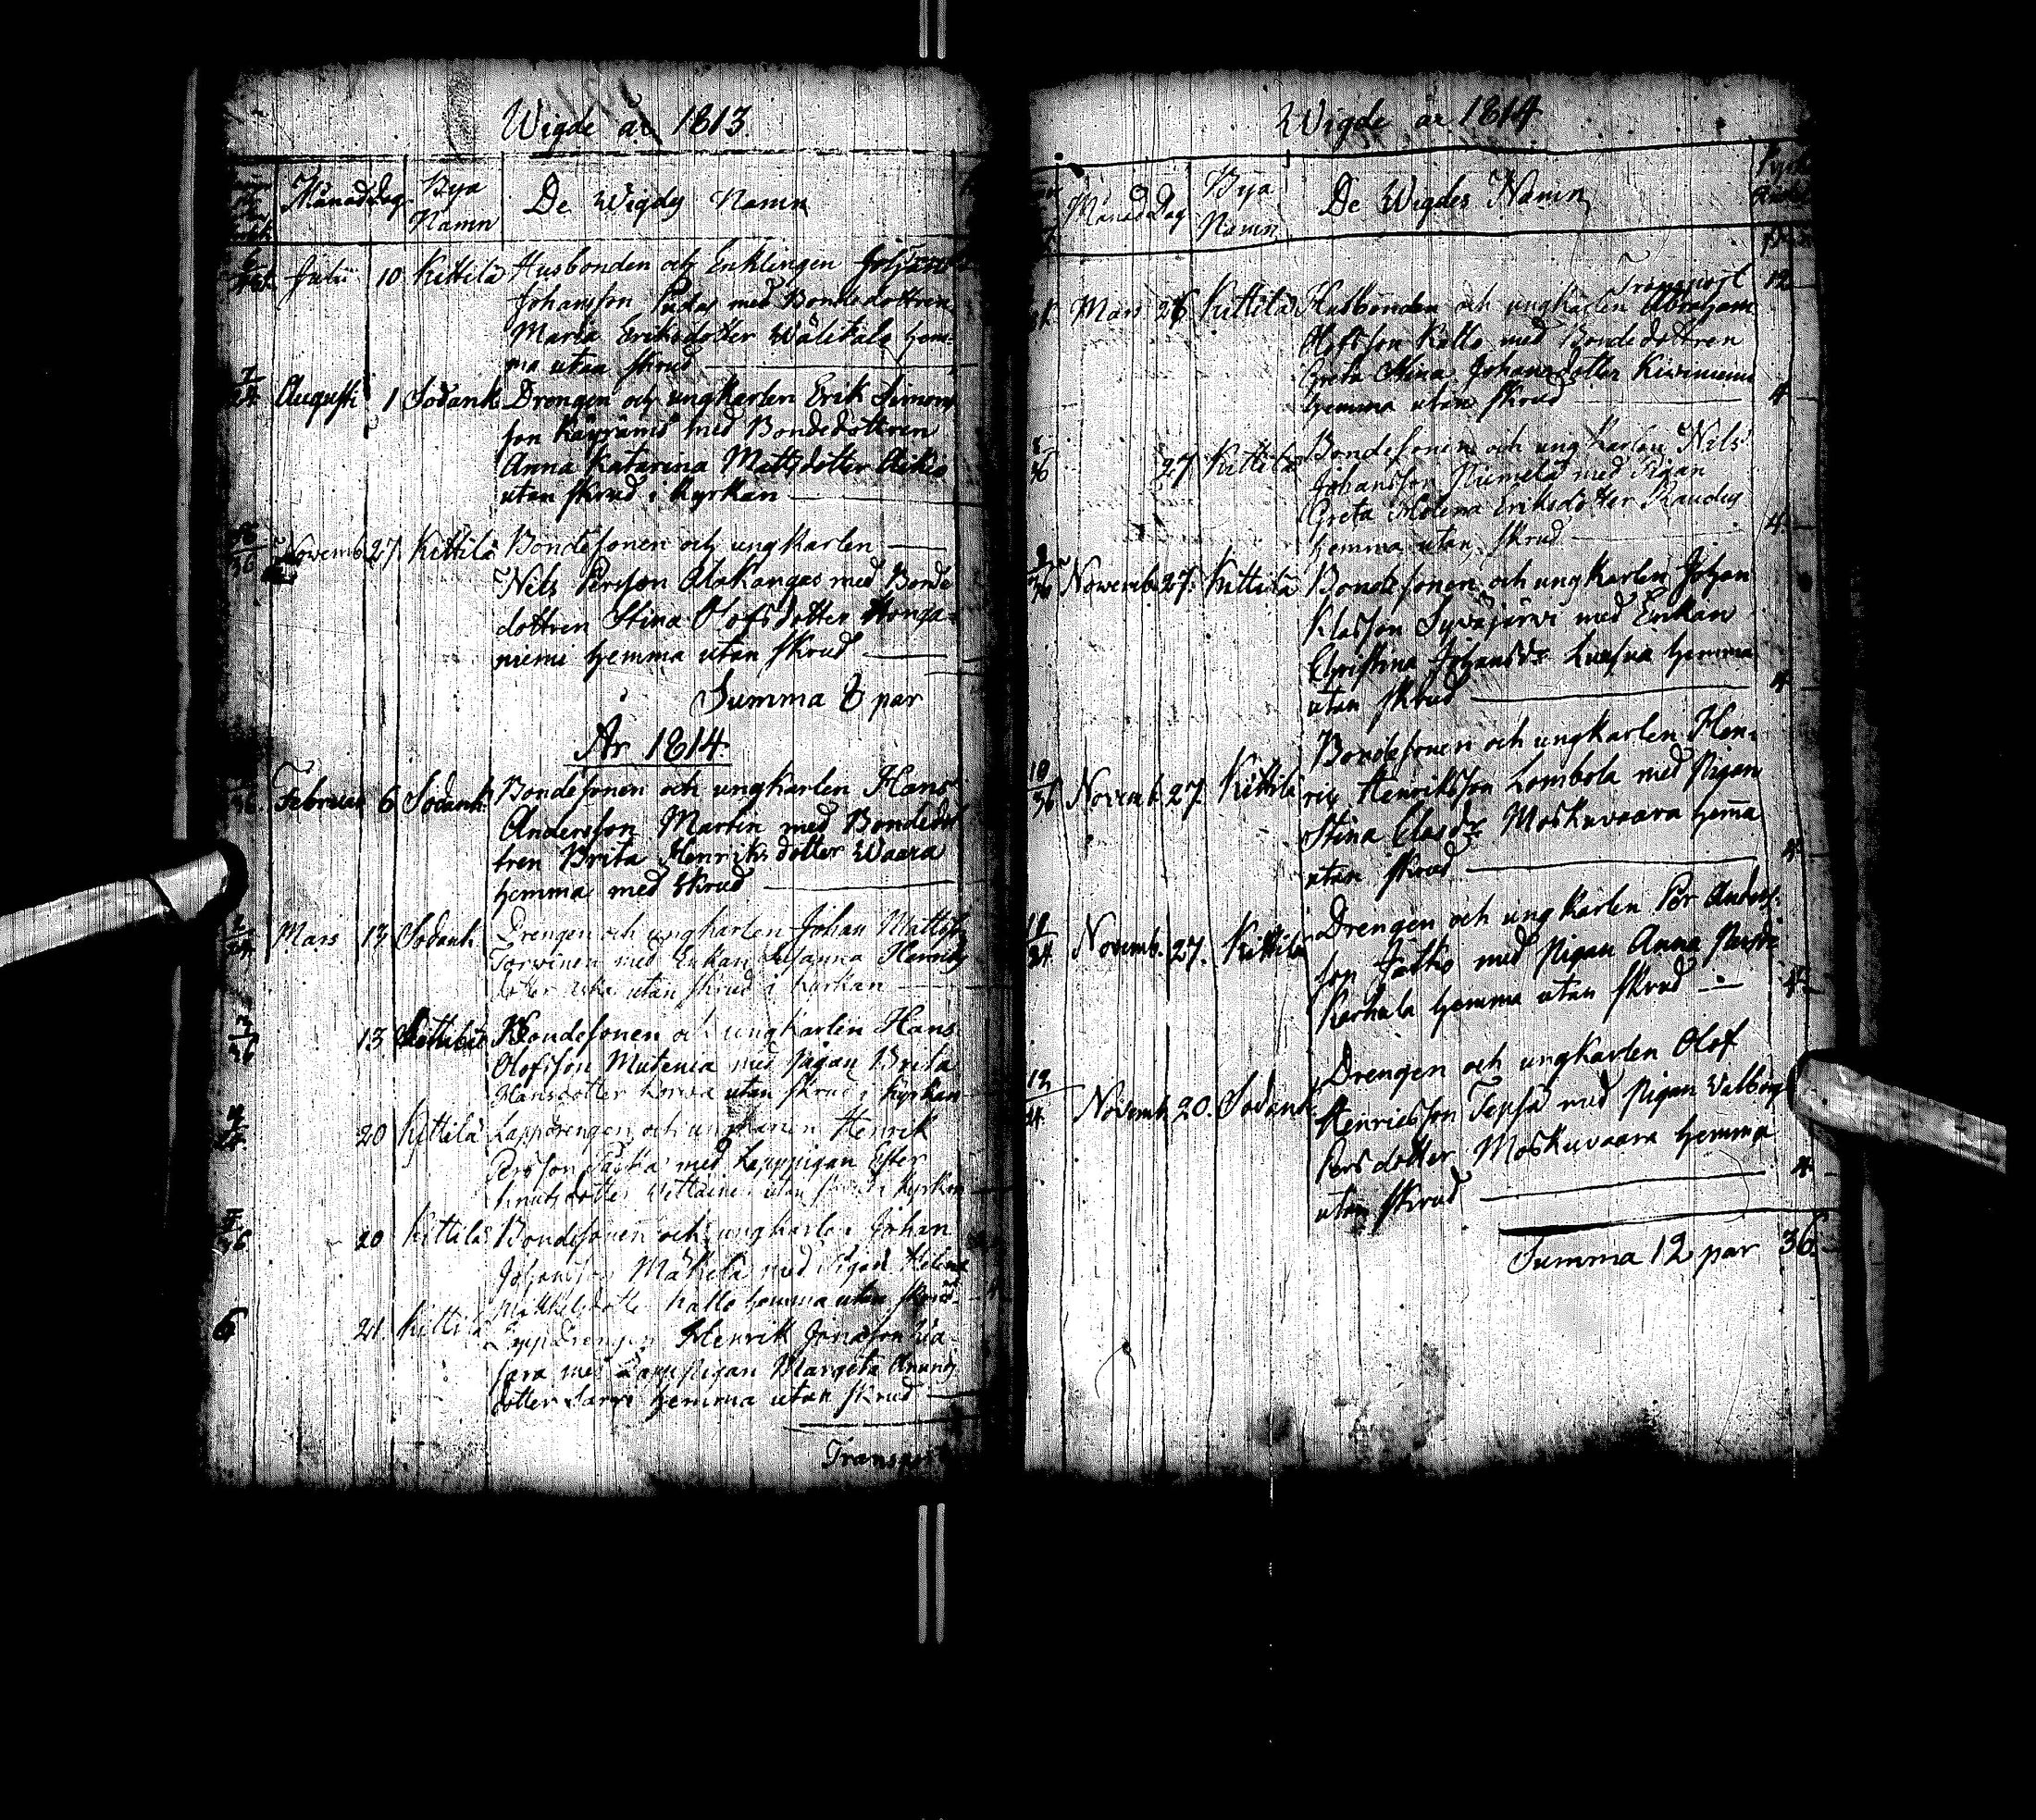 Wigde år 1813
Månad Dag Bya Namn De Wigdes Namn
Julii 10 Kittilä Husbonden och Enklingen Johan
Johansson Pudas med Bondedottren
Maria Eriksdotter Wälitalo hem-
ma utan skrud
Augusti 1 Sodank. Drengen och ungkarlen Erik Simons
son Käyrämö med Bondedottren
Anna Katarina Mattsdotter Aikio
utan skrud i kyrkan
Novemb. 27 Kittilä Bondesonen och ungkarlen
Nils Persson Alakangas med Bonde
dottren Stina Olofsdotter Honga-
niemi hemma utan skrud
Summa 8 par
År 1814
Februar. 6 Sodank. Bondesonen och ungkarlen Hans
Andersson Martin med Bondedot
tren Brita Henriksdotter Waara
hemma med skrud
2/24 Mars 13 Sodank. Drengen och ungkarlen Johan Mattss.
Torvinen med Enkan Susanna Henriks
dotter utan skrud i kyrkan
3/36 13 Kittilä Bondesonen och ungkarlen Hans
Olofsson Mutenia med pigan Brita
Hansdotter utan skrud i kyrkan
20 Kittilä Lappdrengen och ungkarlen Henrik
Persson med Lapppigan Ester
Knutsdotter utan skrud i kyrkan
20 Kittilä Bondesonen och ungkarlen Johan
Johansson Mäkelä med Pigan Helena
Mikkelsdotter Kallo hemma utan skrud
6 21 Kittilä Lappdrengen Henrik Jonasson
med Lapppigan Margeta
dotter Sarri hemma utan skrud
Transport
Wigde år 1814
Månad Dag Bya Namn De Wigdes Namn
Transport 12
Mars 26 Kittilä Husbonden och ungkarlen Abraham
Olofsson Kallo med Bondedottren
Greta Stina Johansdotter Kiviniemi
hemma utan skrud 4
27 Kittilä Bondesonen och ungkarlen Nils
Johansson Niemelä med Pigan
Greta Helena Eriksdotter Raudus
hemma utan skrud 4
Novemb. 27. Kittilä Bondesonen och ungkarlen Johan
Klasson Syväjärvi med Enkan
Christina Johansdr hemma
utan skrud 4
10/36 Novemb. 27. Kittilä Bondesonen och ungkarlen Hen-
rik Henriksson Lombola med Pigan
Stina Clasdr Moskuvaara hemma
utan skrud 4
11/24 Novemb. 27. Kittilä Drengen och ungkarlen Per Anders-
son Jatko med Pigan Anna Persdr
Kerhula hemma utan skrud 4
12 Novemb. 20. Sodank. Drengen och ungkarlen Olof
Henriksson Tepsa med Pigan Valborg
Persdotter Moskuvaara hemma
utan skrud 4
Summa 12 par 36